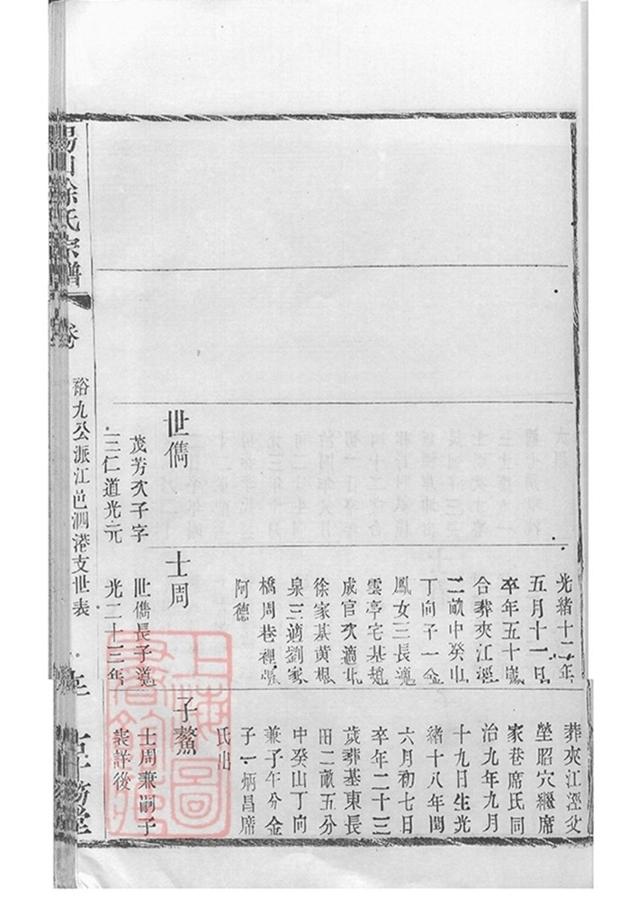 光緒十二年
五月十一日
卒年五十歲
合葬夾江涇
二畝中癸山
丁向子一金
鳳女三長適
雲亭宅基趙
成官次適北
徐家基黃根
泉三適劉家
橋周巷裡張
阿德
葬夾江涇父
塋昭穴繼席
家巷席氏同
治九年九月
十九日生光
緒十八年閏
六月初七日
卒年二十三
歲葬基東長
田二畝五分
中癸山丁向
兼子午分金
子一炳昌席
氏出
世儁
茂芳次子字
三仁道光元
士周
世儁長子道
光二十三年
子鰲
士周兼嗣子
裳詳後
錫山徐氏宗譜
卷
裕九公派江邑泗港支世表